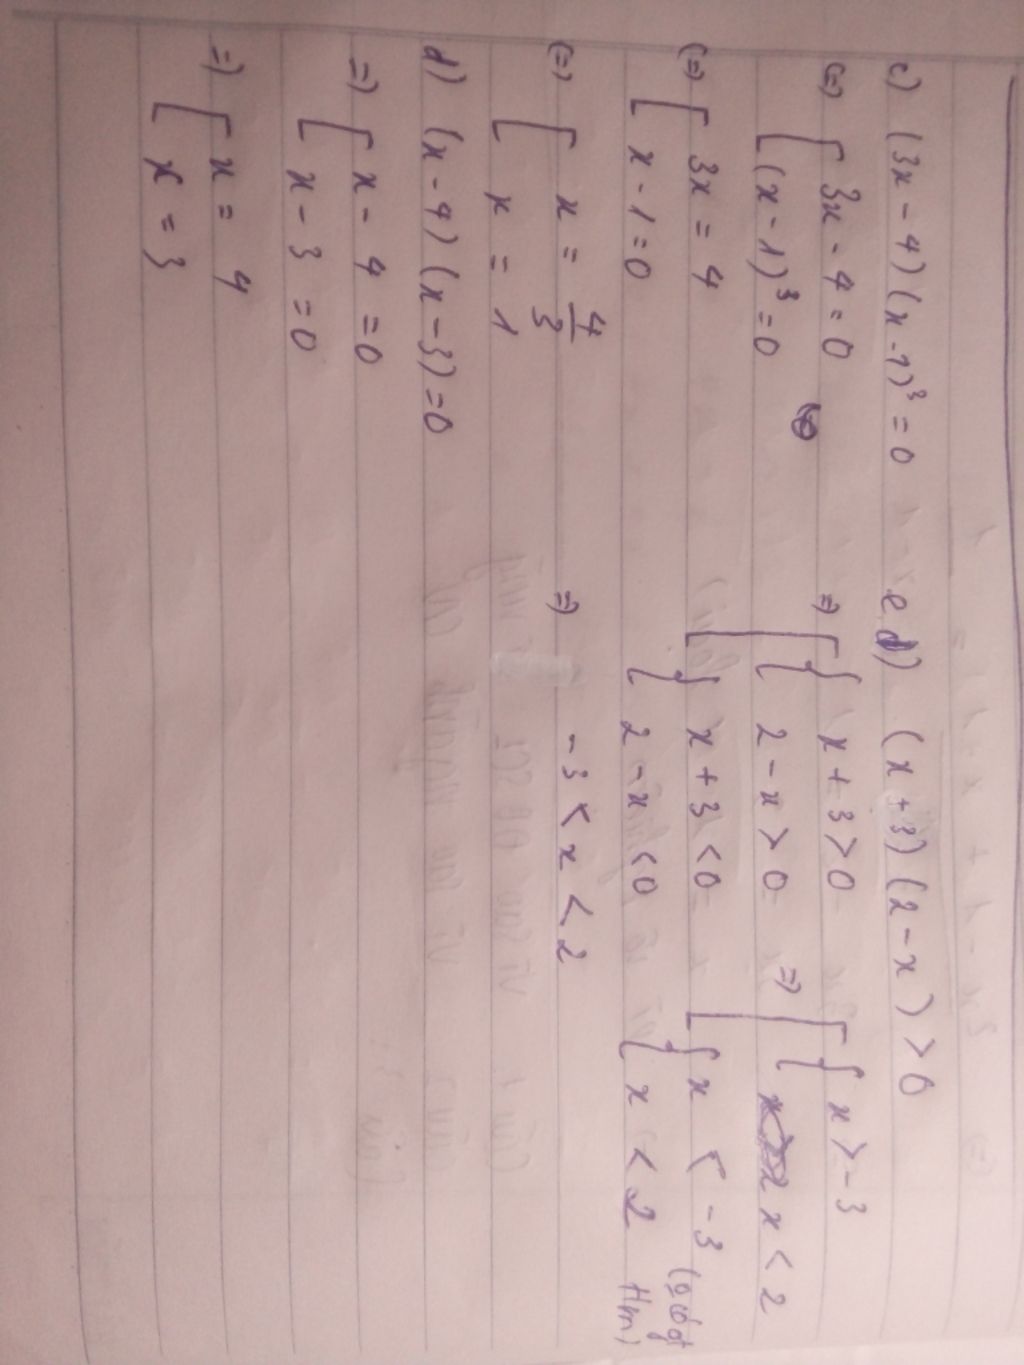 c) (3x - 4)(x - 1)³ = 0
(=) [ 3x - 4 = 0
(x - 1)³ = 0
(=) [ 3x = 4
x - 1 = 0
(=) [ x = 4/3
x = 1
d) (x - 4)(x - 3) = 0
=) [ x - 4 = 0
x - 3 = 0
=) [ x = 4
x = 3
e) (x + 3)(2 - x) > 0
=) [ { x + 3 > 0
2 - x > 0
{ x + 3 < 0
2 - x < 0
=) [ { x > -3
x < 2
{ x < -3
x < 2
=) -3 < x < 2